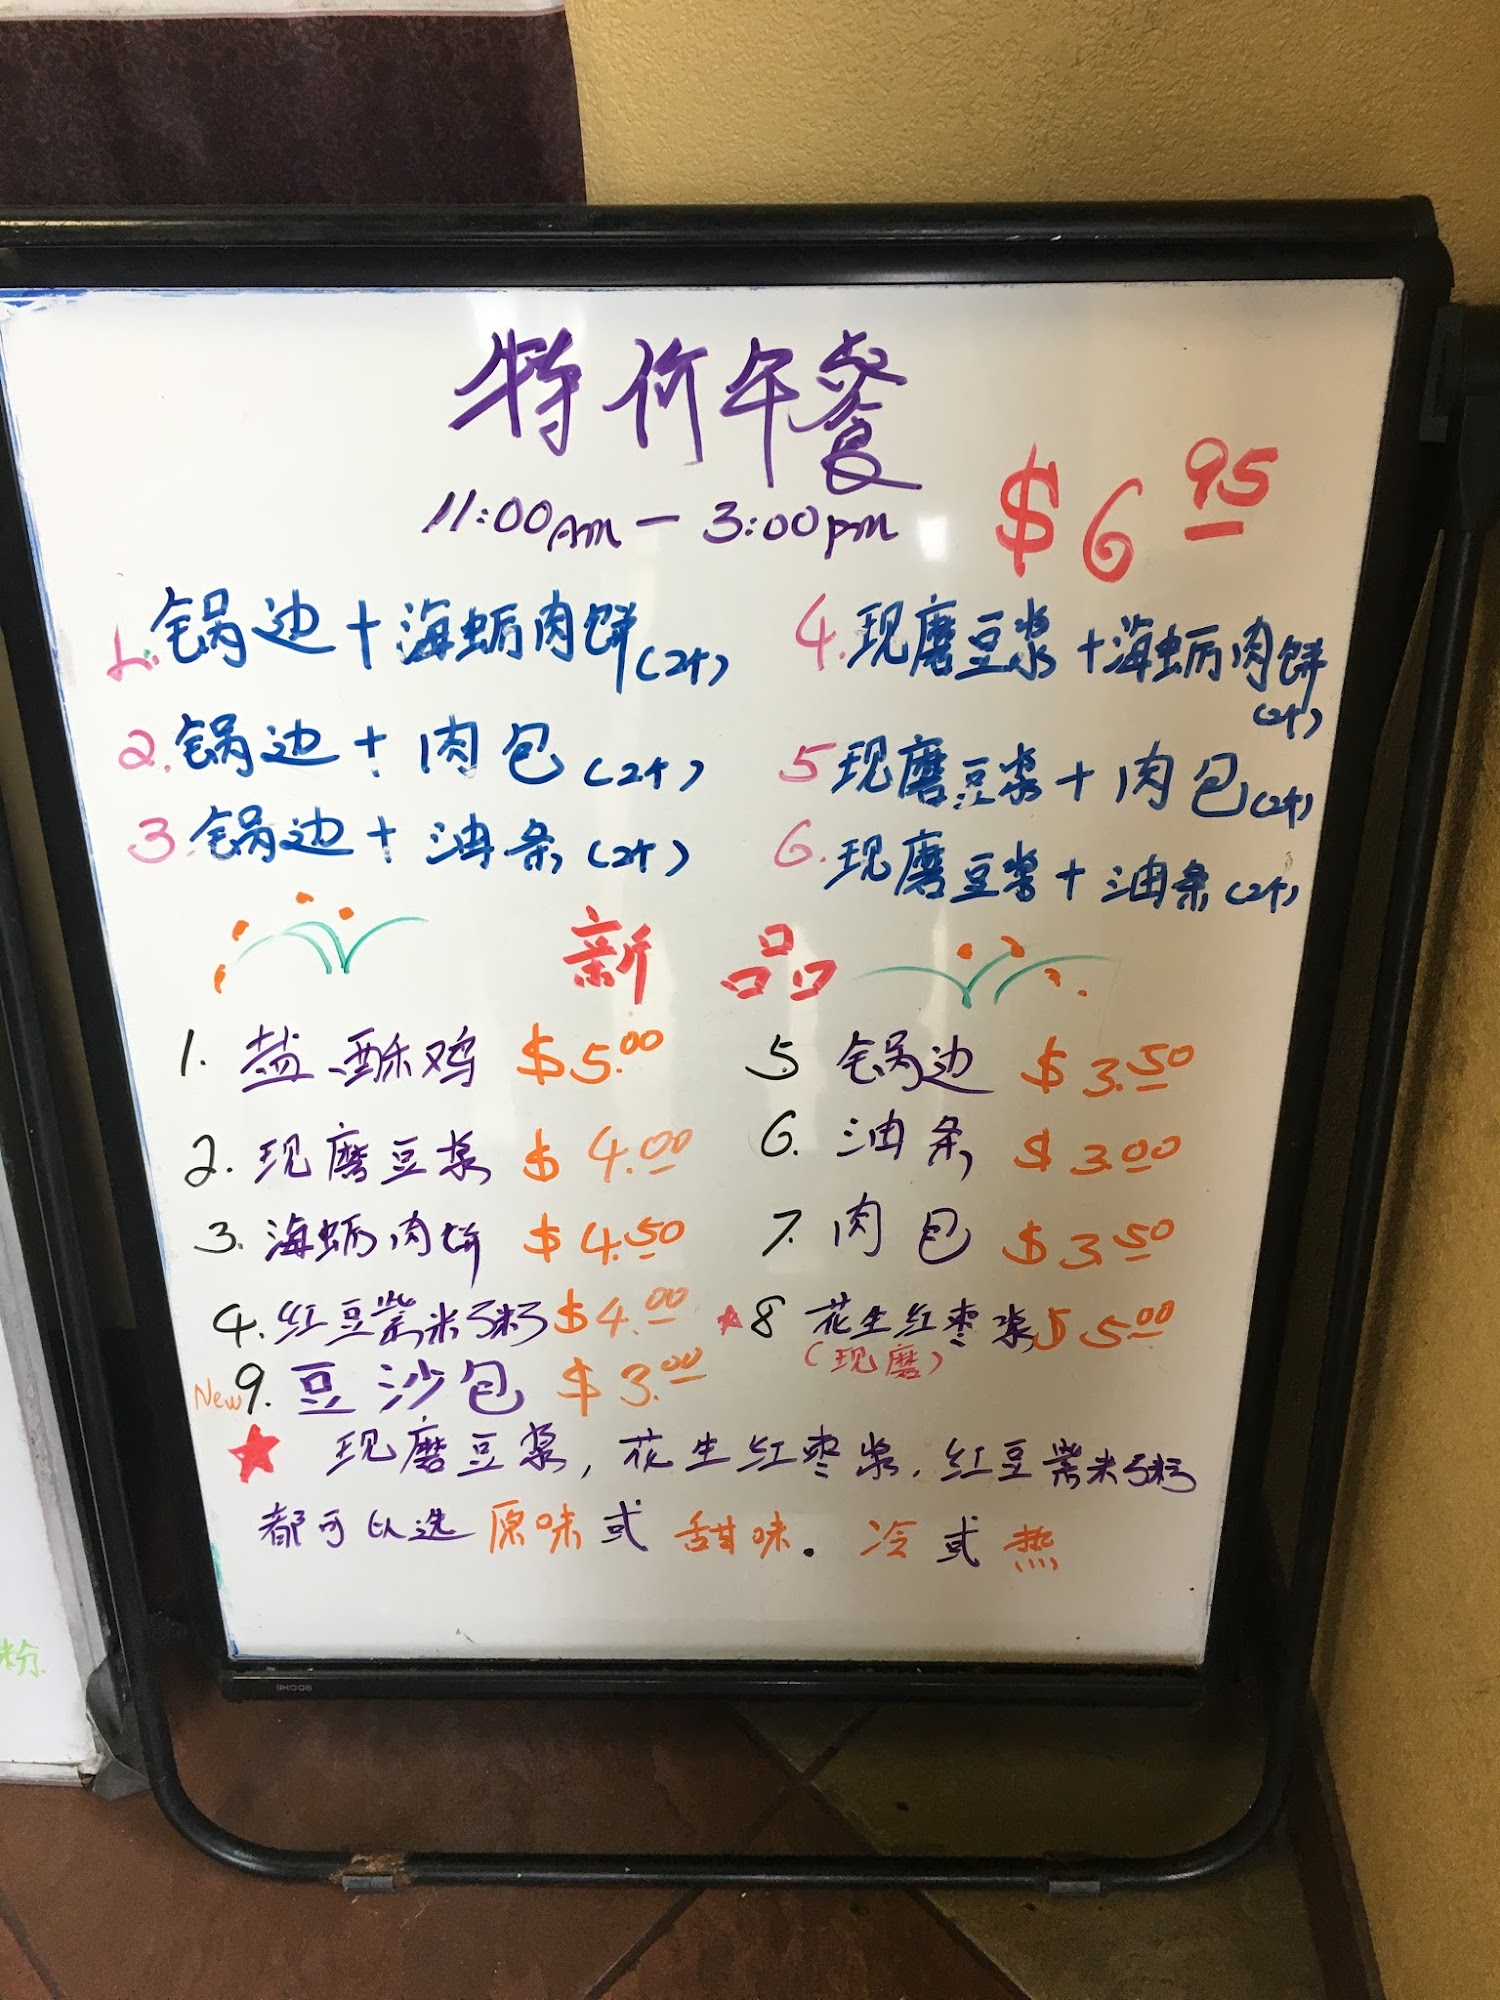 特价午餐
11:00Am - 3:00pm
$6.95
1. 锅边+海蛎肉饼(2个)
4. 现磨豆浆+海蛎肉饼
(2个)
2. 锅边+肉包(2个)
5 现磨豆浆+肉包(2个)
3 锅边+油条(2个)
6. 现磨豆浆+油条(2个)
新品
1. 盐酥鸡 $5.00
5. 锅边 $3.50
2. 现磨豆浆 $4.00
6. 油条 $3.00
3. 海蛎肉饼 $4.50
7. 肉包 $3.50
4. 红豆紫米粥 $4.00
★8 花生红枣浆 $5.00
(现磨)
New 9. 豆沙包 $3.00
★ 现磨豆浆, 花生红枣浆, 红豆紫米粥
都可以选 原味 或 甜味. 冷或热
粉
BOONE